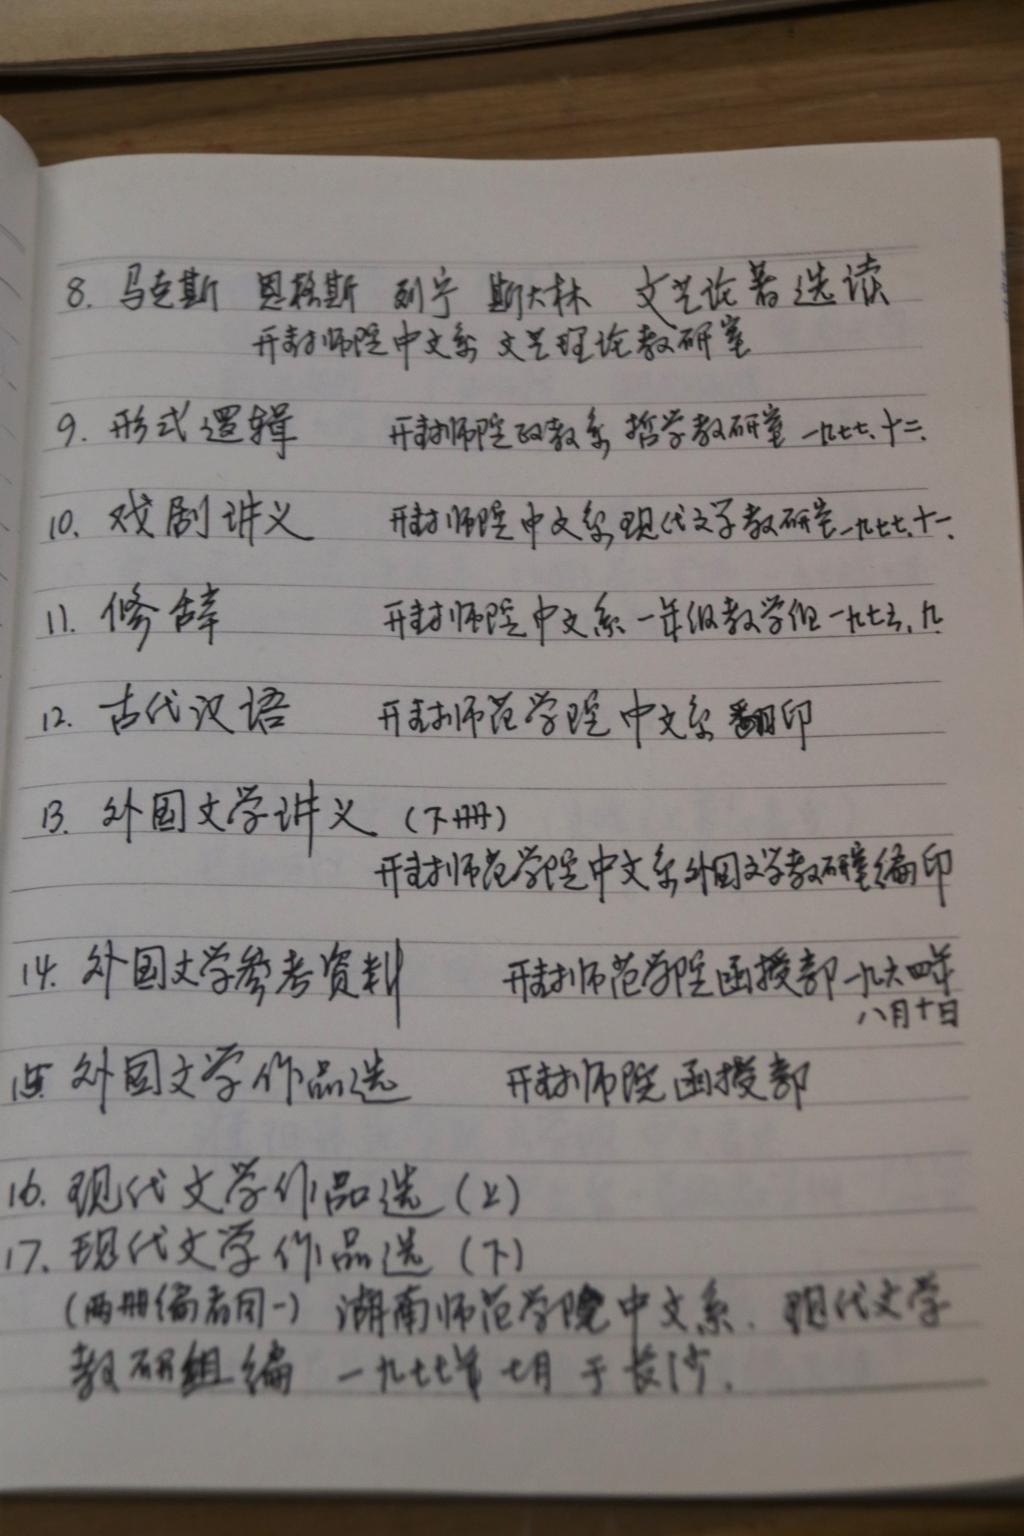 8. 马克斯 恩格斯 列宁 斯大林 文艺论著选读
开封师院中文系 文艺理论教研室
9. 形式逻辑 开封师院政教系 哲学教研室 一九七七、十二、
10. 戏剧讲义 开封师院中文系现代文学教研室一九七七、十一、
11. 修辞 开封师院中文系一年级教学组一九七三、九、
12. 古代汉语 开封师范学院中文系翻印
13. 外国文学讲义 (下册)
开封师范学院中文系外国文学教研室编印
14. 外国文学参考资料 开封师范学院函授部一九六四年
八月十日
15. 外国文学作品选 开封师院函授部
16. 现代文学作品选 (上)
17. 现代文学作品选 (下)
(两册编者同一) 湖南师范学院中文系. 现代文学
教研组编 一九七七年七月于长沙.